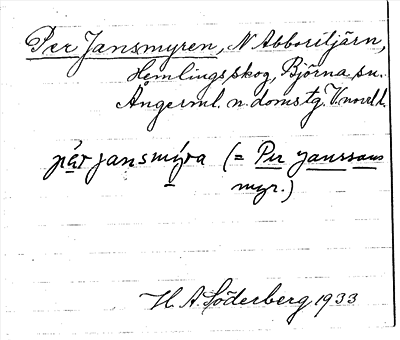 Per Jansmyren, N Abboritjärn,
Hemlingsskog, Björna sn.
Ångerml. n. domstg. V.norrl. l.
pèr jansmýra (= Per Janssons
myr.)
H. A. Söderberg 1933